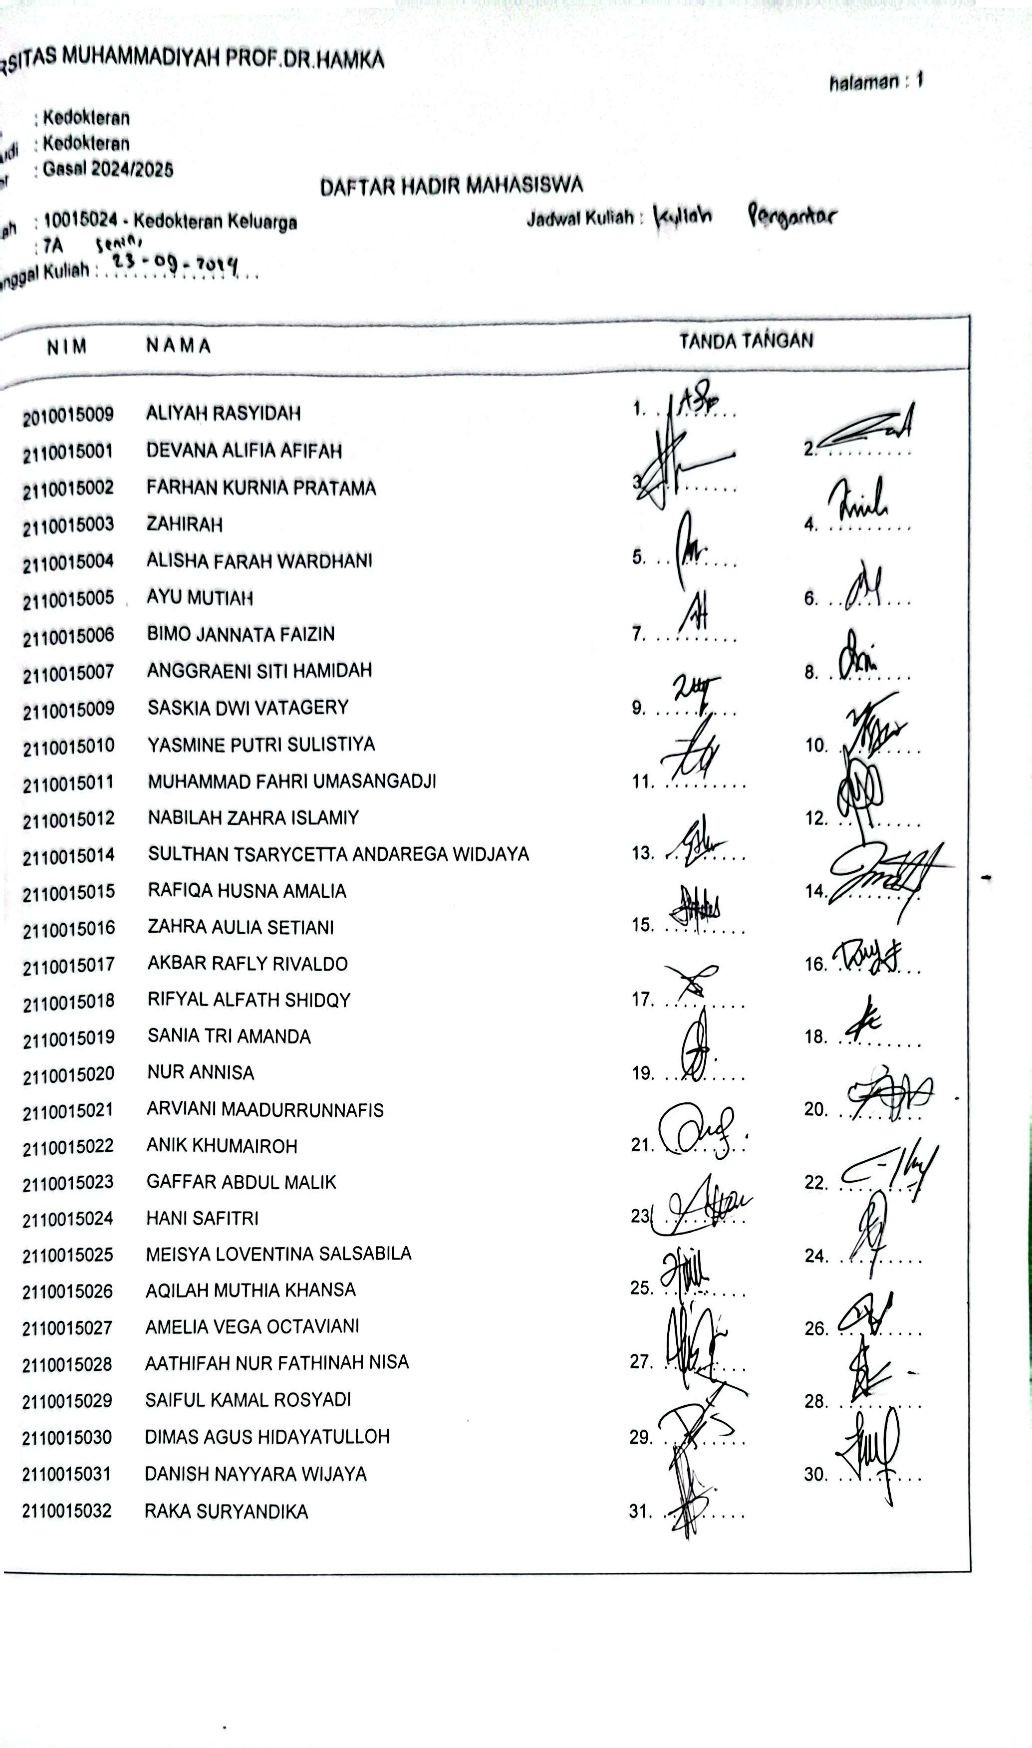 RSITAS MUHAMMADIYAH PROF.DR.HAMKA
halaman : 1
: Kedokteran
udi : Kedokteran
: Gasal 2024/2025
DAFTAR HADIR MAHASISWA
ah : 10015024 - Kedokteran Keluarga Jadwal Kuliah : Kuliah Pengantar
: 7A Senin,
anggal Kuliah : 23-09-2024
NIM NAMA TANDA TANGAN
2010015009 ALIYAH RASYIDAH 1.
2110015001 DEVANA ALIFIA AFIFAH 2.
2110015002 FARHAN KURNIA PRATAMA 3
2110015003 ZAHIRAH 4.
2110015004 ALISHA FARAH WARDHANI 5.
2110015005 AYU MUTIAH 6.
2110015006 BIMO JANNATA FAIZIN 7.
2110015007 ANGGRAENI SITI HAMIDAH 8.
2110015009 SASKIA DWI VATAGERY 9.
2110015010 YASMINE PUTRI SULISTIYA 10.
2110015011 MUHAMMAD FAHRI UMASANGADJI 11.
2110015012 NABILAH ZAHRA ISLAMIY 12.
2110015014 SULTHAN TSARYCETTA ANDAREGA WIDJAYA 13.
2110015015 RAFIQA HUSNA AMALIA 14.
2110015016 ZAHRA AULIA SETIANI 15.
2110015017 AKBAR RAFLY RIVALDO 16.
2110015018 RIFYAL ALFATH SHIDQY 17.
2110015019 SANIA TRI AMANDA 18.
2110015020 NUR ANNISA 19.
2110015021 ARVIANI MAADURRUNNAFIS 20.
2110015022 ANIK KHUMAIROH 21.
2110015023 GAFFAR ABDUL MALIK 22.
2110015024 HANI SAFITRI 23
2110015025 MEISYA LOVENTINA SALSABILA 24.
2110015026 AQILAH MUTHIA KHANSA 25.
2110015027 AMELIA VEGA OCTAVIANI 26.
2110015028 AATHIFAH NUR FATHINAH NISA 27.
2110015029 SAIFUL KAMAL ROSYADI 28.
2110015030 DIMAS AGUS HIDAYATULLOH 29.
2110015031 DANISH NAYYARA WIJAYA 30.
2110015032 RAKA SURYANDIKA 31.